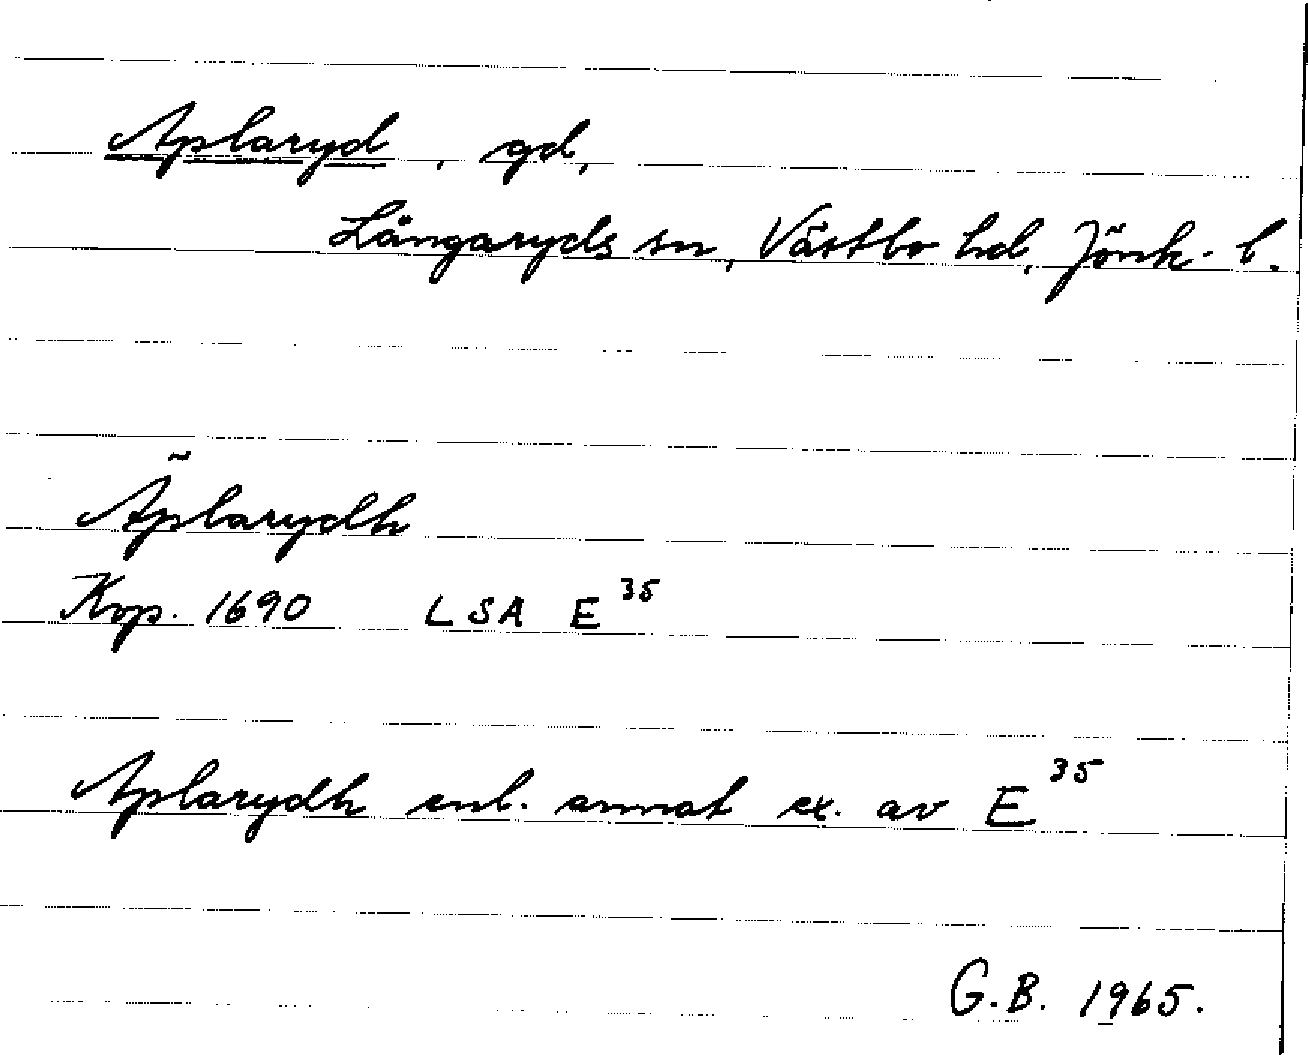 Aplaryd, gd,
Långaryds sn, Västbo hd, Jönk. l.
Äplarydh
Kop. 1690 LSA E 35
Aplarydh enl. annat ex. av E 35
G.B. 1965.